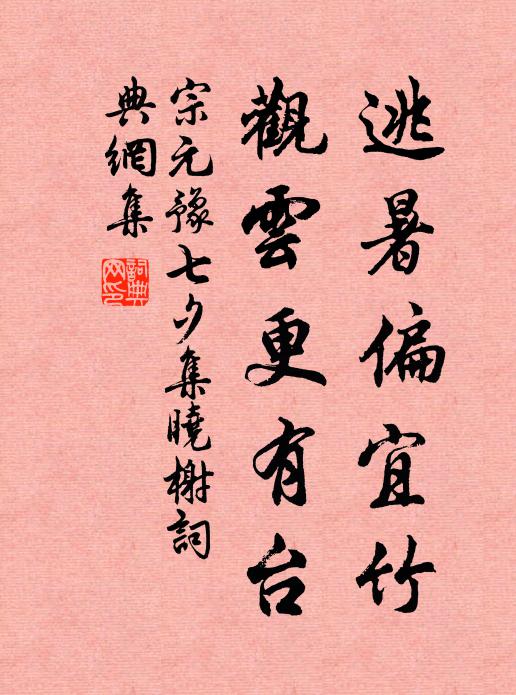 逃暑偏宜竹
觀雲更有台
宗元豫七夕集曉榭詞
典網集
詞典网印